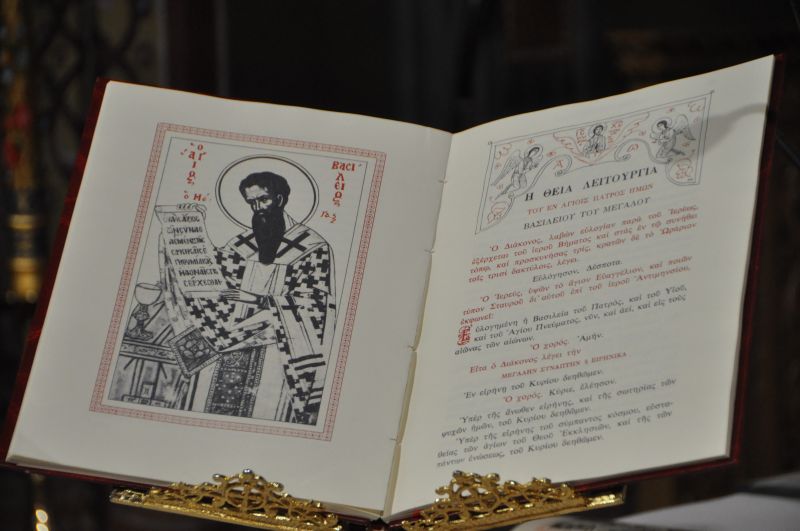 Ο
ἅγιος
ΒΑΣΙΛΕΙΟΣ
ὁ Μέ
γας
Η ΘΕΙΑ ΛΕΙΤΟΥΡΓΙΑ
ΤΟΥ ΕΝ ΑΓΙΟΙΣ ΠΑΤΡΟΣ ΗΜΩΝ
ΒΑΣΙΛΕΙΟΥ ΤΟΥ ΜΕΓΑΛΟΥ
Ὁ Διάκονος, λαβὼν εὐλογίαν παρὰ τοῦ Ἱερέως,
ἐξέρχεται τοῦ ἱεροῦ Βήματος καὶ στὰς ἐν τῷ συνήθει
τόπῳ, καὶ προσκυνήσας τρίς, κρατῶν δὲ τὸ Ὡράριον
τοῖς τρισὶ δακτύλοις, λέγει.
Εὐλόγησον, Δέσποτα.
Ὁ Ἱερεύς, ὑψῶν τὸ ἅγιον Εὐαγγέλιον, καὶ ποιῶν
τύπον Σταυροῦ δι' αὐτοῦ ἐπὶ τοῦ ἱεροῦ Ἀντιμηνσίου,
ἐκφωνεῖ:
Εὐλογημένη ἡ Βασιλεία τοῦ Πατρός, καὶ τοῦ Υἱοῦ,
καὶ τοῦ Ἁγίου Πνεύματος, νῦν, καὶ ἀεί, καὶ εἰς τοὺς
αἰῶνας τῶν αἰώνων.
Ὁ χορός. Ἀμήν.
Εἶτα ὁ Διάκονος λέγει τὴν
ΜΕΓΑΛΗΝ ΣΥΝΑΠΤΗΝ ἢ ΕΙΡΗΝΙΚΑ
Ἐν εἰρήνῃ τοῦ Κυρίου δεηθῶμεν.
Ὁ χορός. Κύριε, ἐλέησον.
Ὑπὲρ τῆς ἄνωθεν εἰρήνης, καὶ τῆς σωτηρίας τῶν
ψυχῶν ἡμῶν, τοῦ Κυρίου δεηθῶμεν.
Ὑπὲρ τῆς εἰρήνης τοῦ σύμπαντος κόσμου, εὐστα-
θείας τῶν ἁγίων τοῦ Θεοῦ Ἐκκλησιῶν, καὶ τῆς τῶν
πάντων ἑνώσεως, τοῦ Κυρίου δεηθῶμεν.